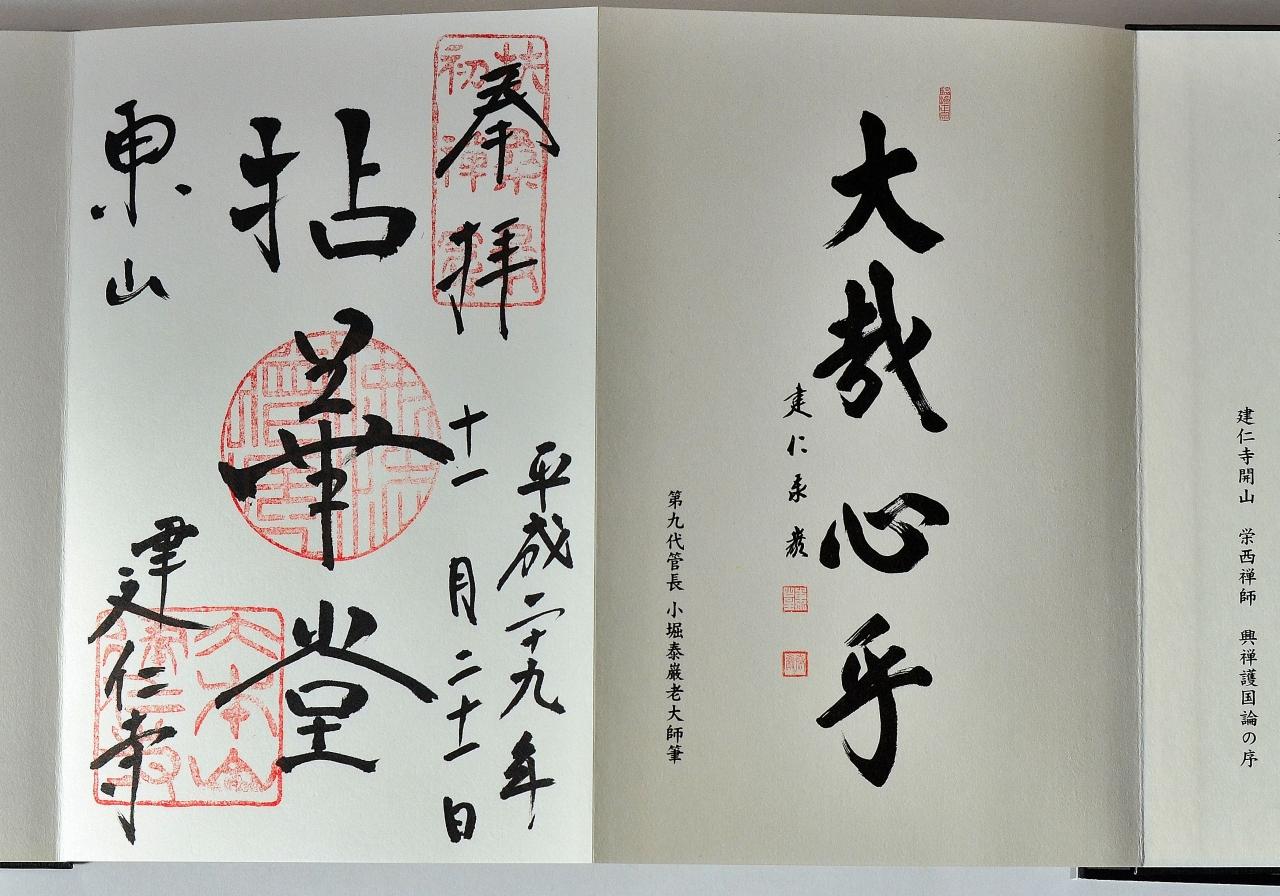 建仁寺開山　栄西禅師　興禅護国論の序
大哉心乎
建仁泰巖
第九代管長 小堀泰巌老大師筆
奉拝
扶桑最
初禅窟
平成二十九年
十一月二十一日
拈華堂
東山
建仁寺
大本山
建仁寺